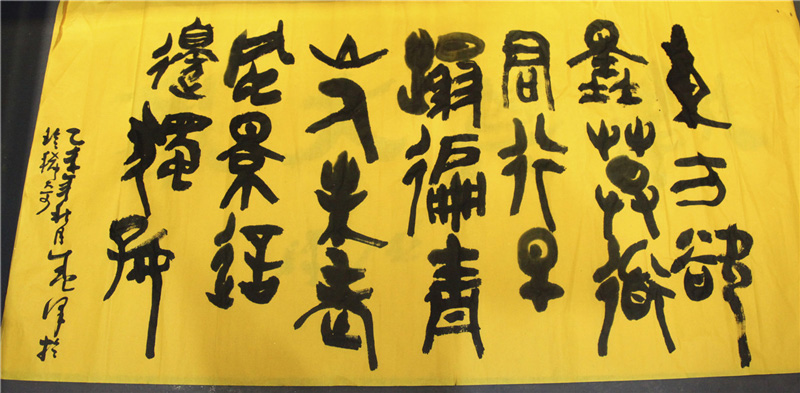 東方欲
曉莫道
君行早
蹋徧青
山人未老
風景這
邊獨好
乙未年秋月